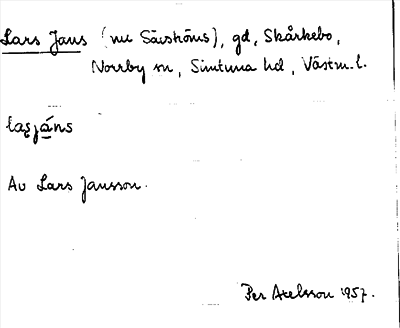 Lars Jans (nu Särströms), gd, Skårkebo,
Norrby sn, Simtuna hd, Västm. l.
laʂjá̱ns
Av Lars Jansson.
Per Axelsson 1957.